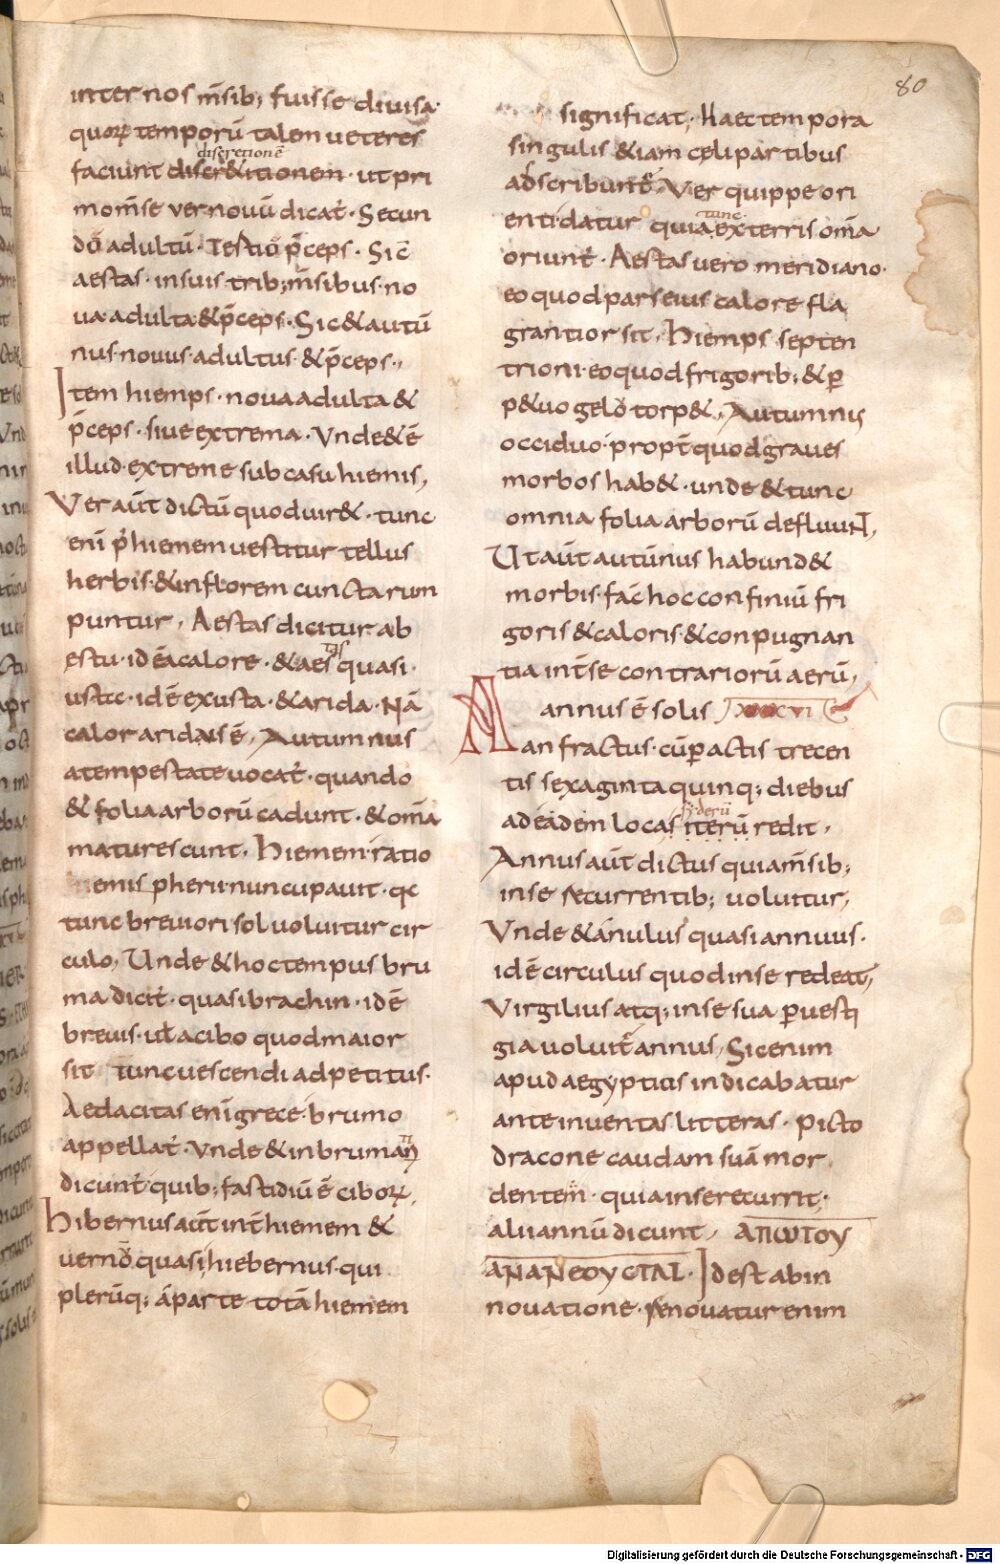 80
inter nos m̄sib; fuisse diuisa·
quoꝝ temporū talem ueteres
discretionē
faciunt discr&itionem· ut pri
mom̄se ver nouū dicat̄· Secun
dō adultū· Testiō p̄ceps· Sic̄
aestas· insuis trib; m̄sibus· no
ua· adulta & p̄ceps· Sic & autū
nus· nouus· adultus· & p̄ceps·,
Item hiemps· noua adulta &
p̄ceps· siue extrema· Vnde & ē
illud· extreme sub casu hiemis,
Ver aūt dictū quod uir&· tunc
enī p̄ hiemem uestitur tellus
herbis· & in florem cuncta rum
puntur, Aestas dicitur ab
estu· id ē a calore· & aestas quasi·
ustec· id ē exusta· & arida· Nā
calor aridus ē, Autumnus
a tempestate uocat̄· quando
& folia arborū cadunt· & om̄a
maturescunt, Hiemem· ratio
hemispherii· nuncupauit· qc
tunc breuiori sol uoluitur cir
culo, Unde & hoc tempus bru
ma dicit̄· quasi brachin· id ē
breuis· uł a cibo quod maior
sit tunc uescendi adpetitus·
Aedacitas enī grece· brumo
appellat̄· Vnde & inbruman
dicunt̄ quib; fastidiū ē ciboꝝ,
Hibernus aūt int̄ hiemem &
uernō quasi hiebernus· qui
plerūq; a parte totā hiemem
significat; Haec tempora
singulis &iam celi partibus
adscribunt̄, Ver quippe ori
enti datur quia tunc ex terris om̄a
oriunt̄· Aestas uero meridiano·
eo quod pars eius calore fla
grantior sit, Hiemps septen
trioni· eo quod frigorib; & ꝑ
p&uo gelō torp&, Autumnis
occiduo· propt̄ quod graues
morbos hab&· unde & tunc
omnia folia arborū defluuNt,
Ut aūt autūnus habund&
morbis· fac̄ hoc confiniū fri
goris & caloris· & conpugnan
tia int̄ se contrariorū aerū,
Annus ē solis XXXVI
anfractus· cū ꝑactis trecen
tis sexaginta quinq; diebus
ad eadem loca siderū iterū redit,
Annus aūt dictus quia m̄sib;
in se recurrentib; uoluitur,
Vnde & anulus quasi annuus·
id ē circulus quod in se redeat,
Virgilius atq; in se sua ꝑ uesti
gia uoluit̄ annus, Sic enim
apud aegyptios indicabatur
ante inuentas litteras· picto
dracone caudam suā mor
dentem· quia in se recurrit;
alii annū dicunt, ΑΠΩΤΟΥ
ΑΝΑΝΕΟΥCΤΑΙ· Id est ab in
nouatione· renouatur enim
Digitalisierung gefördert durch die Deutsche Forschungsgemeinschaft - DFG